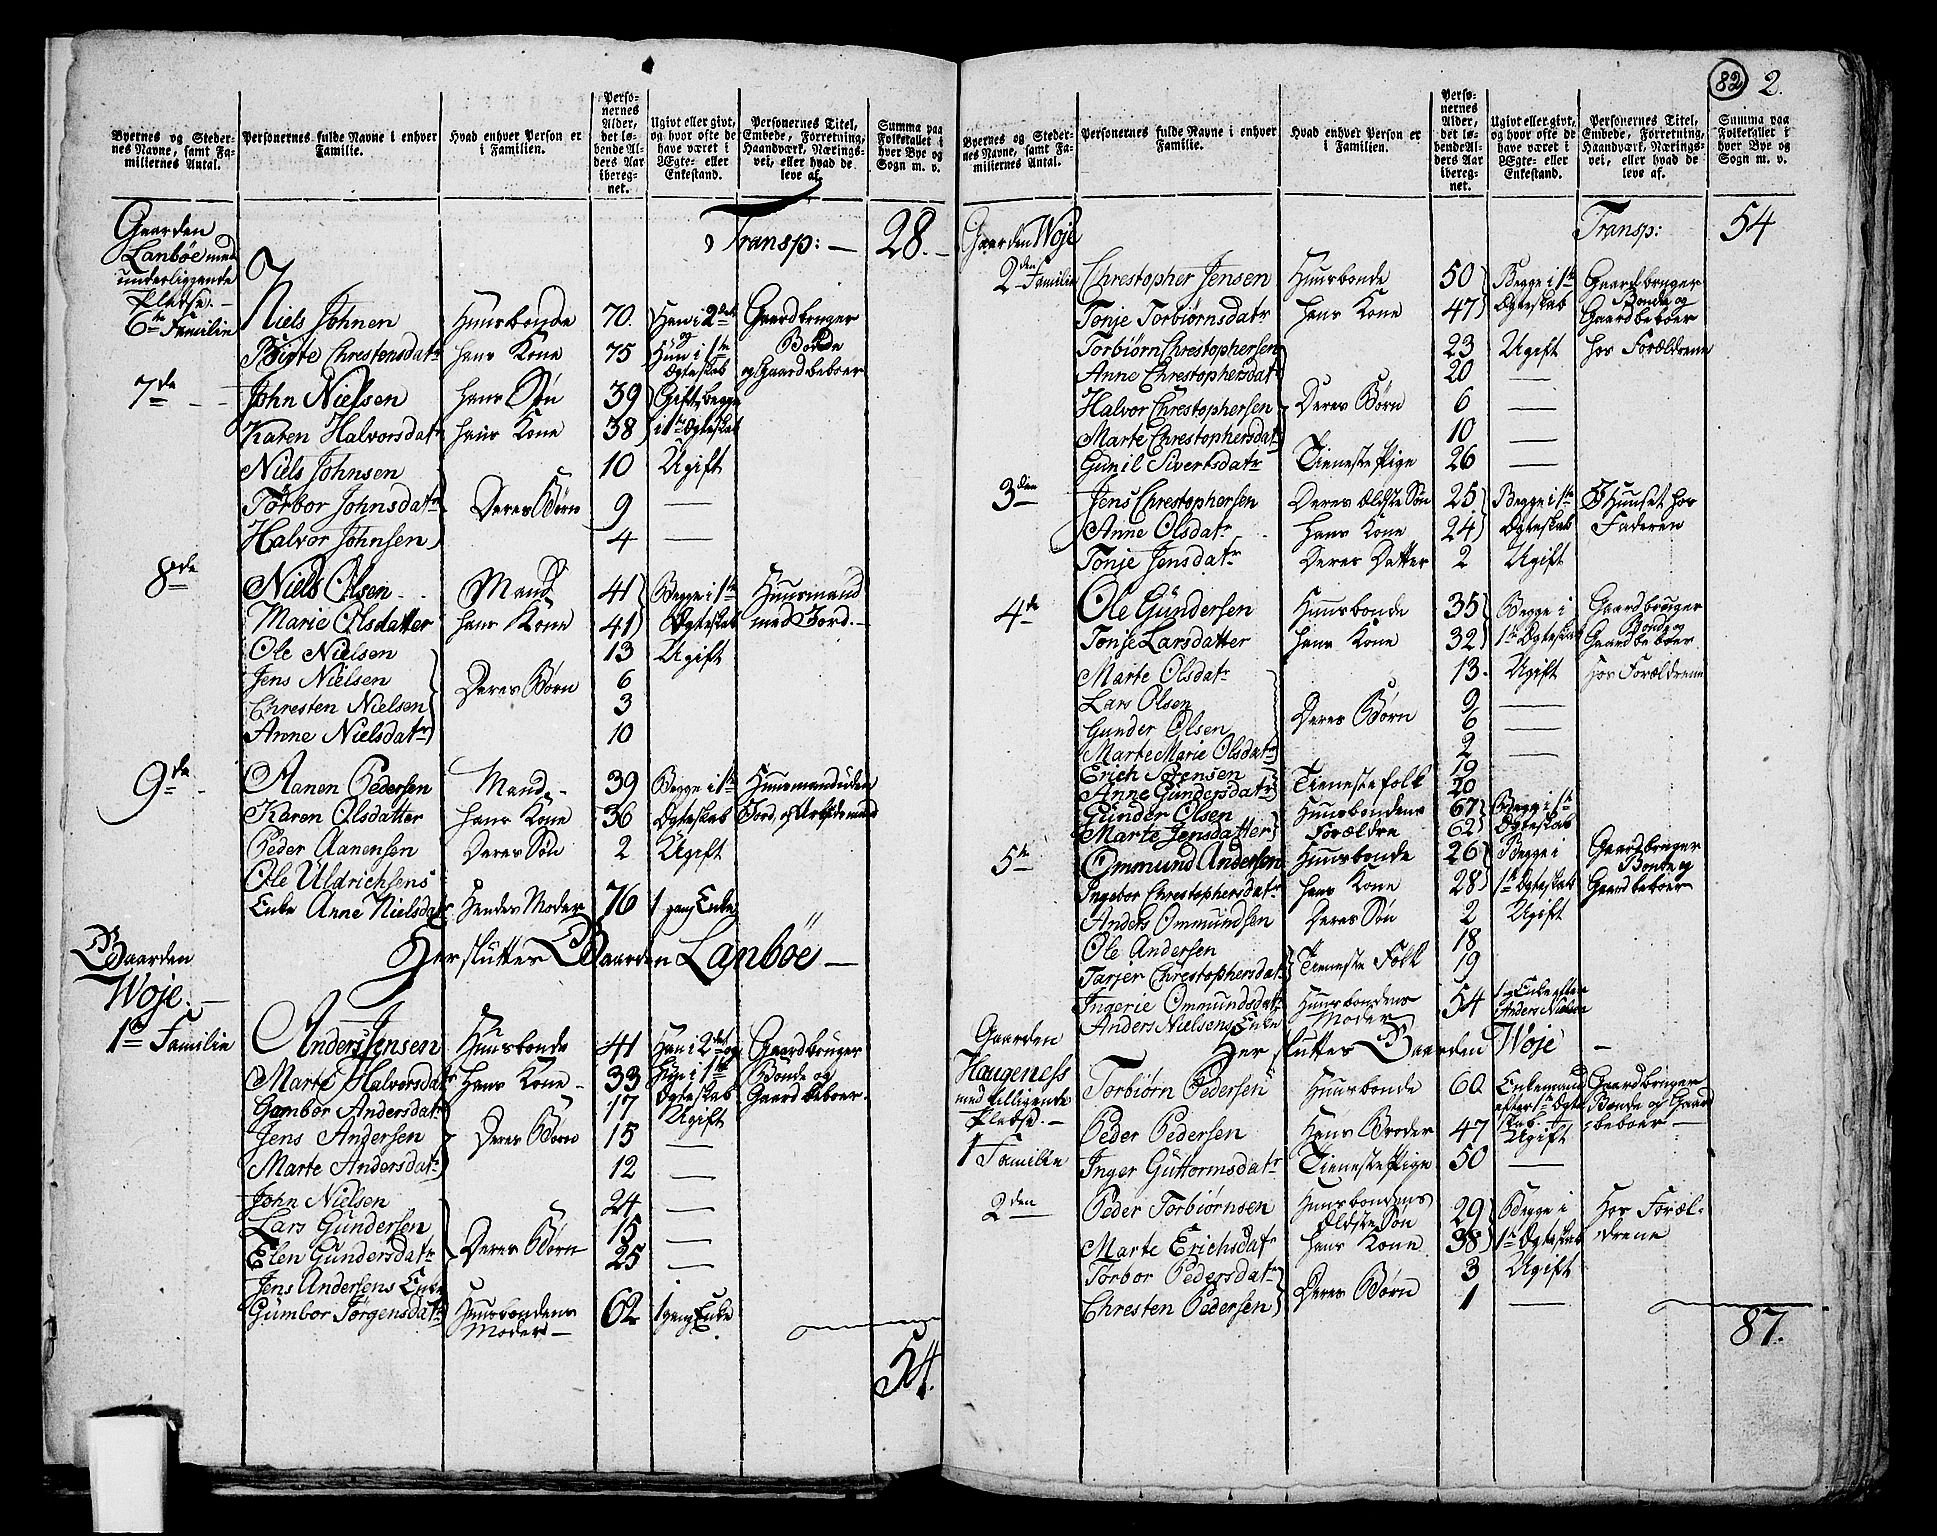 Byernes og Steder-nes Navne, samt Fa-miliernes Antal. | Personernes fulde Navne i enhver Familie. | Hvad enhver Person er i Familien. | Perso-nernes Alder, det lø-bende Al-ders Aar ibereg-net. | Ugivt eller givt, og hvor ofte de have været i Ægte- eller Enkestand. | Personernes Titel, Embede, Forretning, Haandværk, Nærings-vei, eller hvad de leve af. | Summa paa Folketallet i hver Bye og Sogn m. v.
Gaarden Transp: — 28. —
Lanbøe med
underliggende
Pladse. —
6te Familie Niels Johnen Huusbonde 70. Han i 2det Gaardbruger
Birte Chrestensdatr hans Kone 75 og Hun i 1te Ægteskab Bonde og Gaardbeboer
7de John Nielsen hans Søn 39 Gift, begge
Karen Halvorsdatr hans Kone 38 i 1te Ægteskab
Niels Johnsen 10 Ugift
Torbor Johnsdatr Deres Børn 9 —
Halvor Johnsen 4 —
8de Niels Olsen Mand 41 Begge i 1te Huusmand
Marie Olsdatter hans Kone 41 Ægteskab med Jord. —
Ole Nielsen 13 Ugift
Jens Nielsen Deres Børn 6
Chresten Nielsen 3
Anne Nielsdatr 10
9de Aanen Pedersen Mand 39 Begge i 1te Huusmand uden
Karen Olsdatter hans Kone 36 Ægteskab Jord, og
Peder Aanensen Deres Søn 2 Ugift
Ole Uldrichsens
Enke Anne Nielsdatr Hendes Moder 76 1 gang Enke
Gaarden Her slutter Gaarden Lanbøe —
Woje. —
1te Familie Anders Jensen Huusbonde 41 Han i 2det og Gaardbruger
Marte Halvorsdatr hans Kone 33 hun i 1te Bonde og
Gombor Andersdatr 17 Ægteskab Ugift Gaardbeboer.
Jens Andersen Deres Børn 15 —
Marte Andersdatr 12 —
John Nielsen 24 —
Lars Gundersen Deres Børn 15 —
Elen Gundersdatr 25 —
Jens Andersens Enke
Gumbor Jørgensdatr Huusbondens Moder — 62 1 gang Enke
54.
82 2.
Byernes og Steder-nes Navne, samt Fa-miliernes Antal. | Personernes fulde Navne i enhver Familie. | Hvad enhver Person er i Familien. | Perso-nernes Alder, det lø-bende Al-ders Aar ibereg-net. | Ugivt eller givt, og hvor ofte de have været i Ægte- eller Enkestand. | Personernes Titel, Embede, Forretning, Haandværk, Nærings-vei, eller hvad de leve af. | Summa paa Folketallet i hver Bye og Sogn m. v.
Gaarden Woje Transp: 54
2den Familie Chrestopher Jensen Huusbonde 50 Begge i 1te Gaardbruger
Tonje Torbiørnsdatr hans Kone 47 Ægteskab Bonde og Gaardbeboer
Torbiørn Chrestophersen 23 Ugift hos Forældrene
Anne Chrestophersdatr 20 —
Halvor Chrestophersen Deres Børn 6 —
Marte Chrestophersdatr 10 —
Gunil Sivertsdatr Tieneste Pige 26 —
3die Jens Chrestophersen Deres Ældste Søn 25 Begge i 1te I Huuset hos
Anne Olsdatr Hans Kone 24 Ægteskab Faderen
Tonje Jensdatr Deres Datter 2 Ugift
4de Ole Gundersen Huusbonde 35 Begge i Gaardbruger
Tonje Larsdatter hans Kone 32 1te Ægteskab Bonde og Gaardbeboer
Marte Olsdatr 13. Ugift Hos Forældrene
Lars Olsen 9 —
Gunder Olsen Deres Børn 6 —
Marte Marie Olsdatr 2 —
Erich Sørensen 19
Anne Gundersdatr Tienestefolk 20
Gunder Olsen Huusbondens 67 Begge i 1te
Marte Jensdatter Forældre 62 Ægteskab
5te Ommund Andersen Huusbonde 26 Begge i Gaardbruger
Ingebor Chrestophersdatr hans Kone 28 1te Ægteskab Bonde og Gaardbeboer
Anders Ommundsen Deres Søn 2 Ugift
Ole Andersen 18
Tarjer Chrestophersdatr Tieneste Folk 19
Ingerie Ommundsdatr Huusbondens 54 1 g Enke efter
Anders Nielsens Enke Moder Anders Nielsen
Gaarden Her slutter Gaarden Woje —
Haugeness Torbiørn Pedersen Huusbonde 60 Enkemand Gaardbruger
med tilligende efter 1te Ægte- Bonde og Gaard-
Pladse. — Peder Pedersen Hans Broder 47 skab. Ugift beboer —
1 Familie Inger Guttormsdatr Tieneste Pige 50 —
2den Peder Torbiørnsen Huusbondens Ældste Søn 29 Begge i Hos Foræl-
Marte Erichsdatr hans Kone 38 1te Ægteskab drene
Torbor Pedersdatr 3 Ugift
Chresten Pedersen Deres Børn 1 —
87.